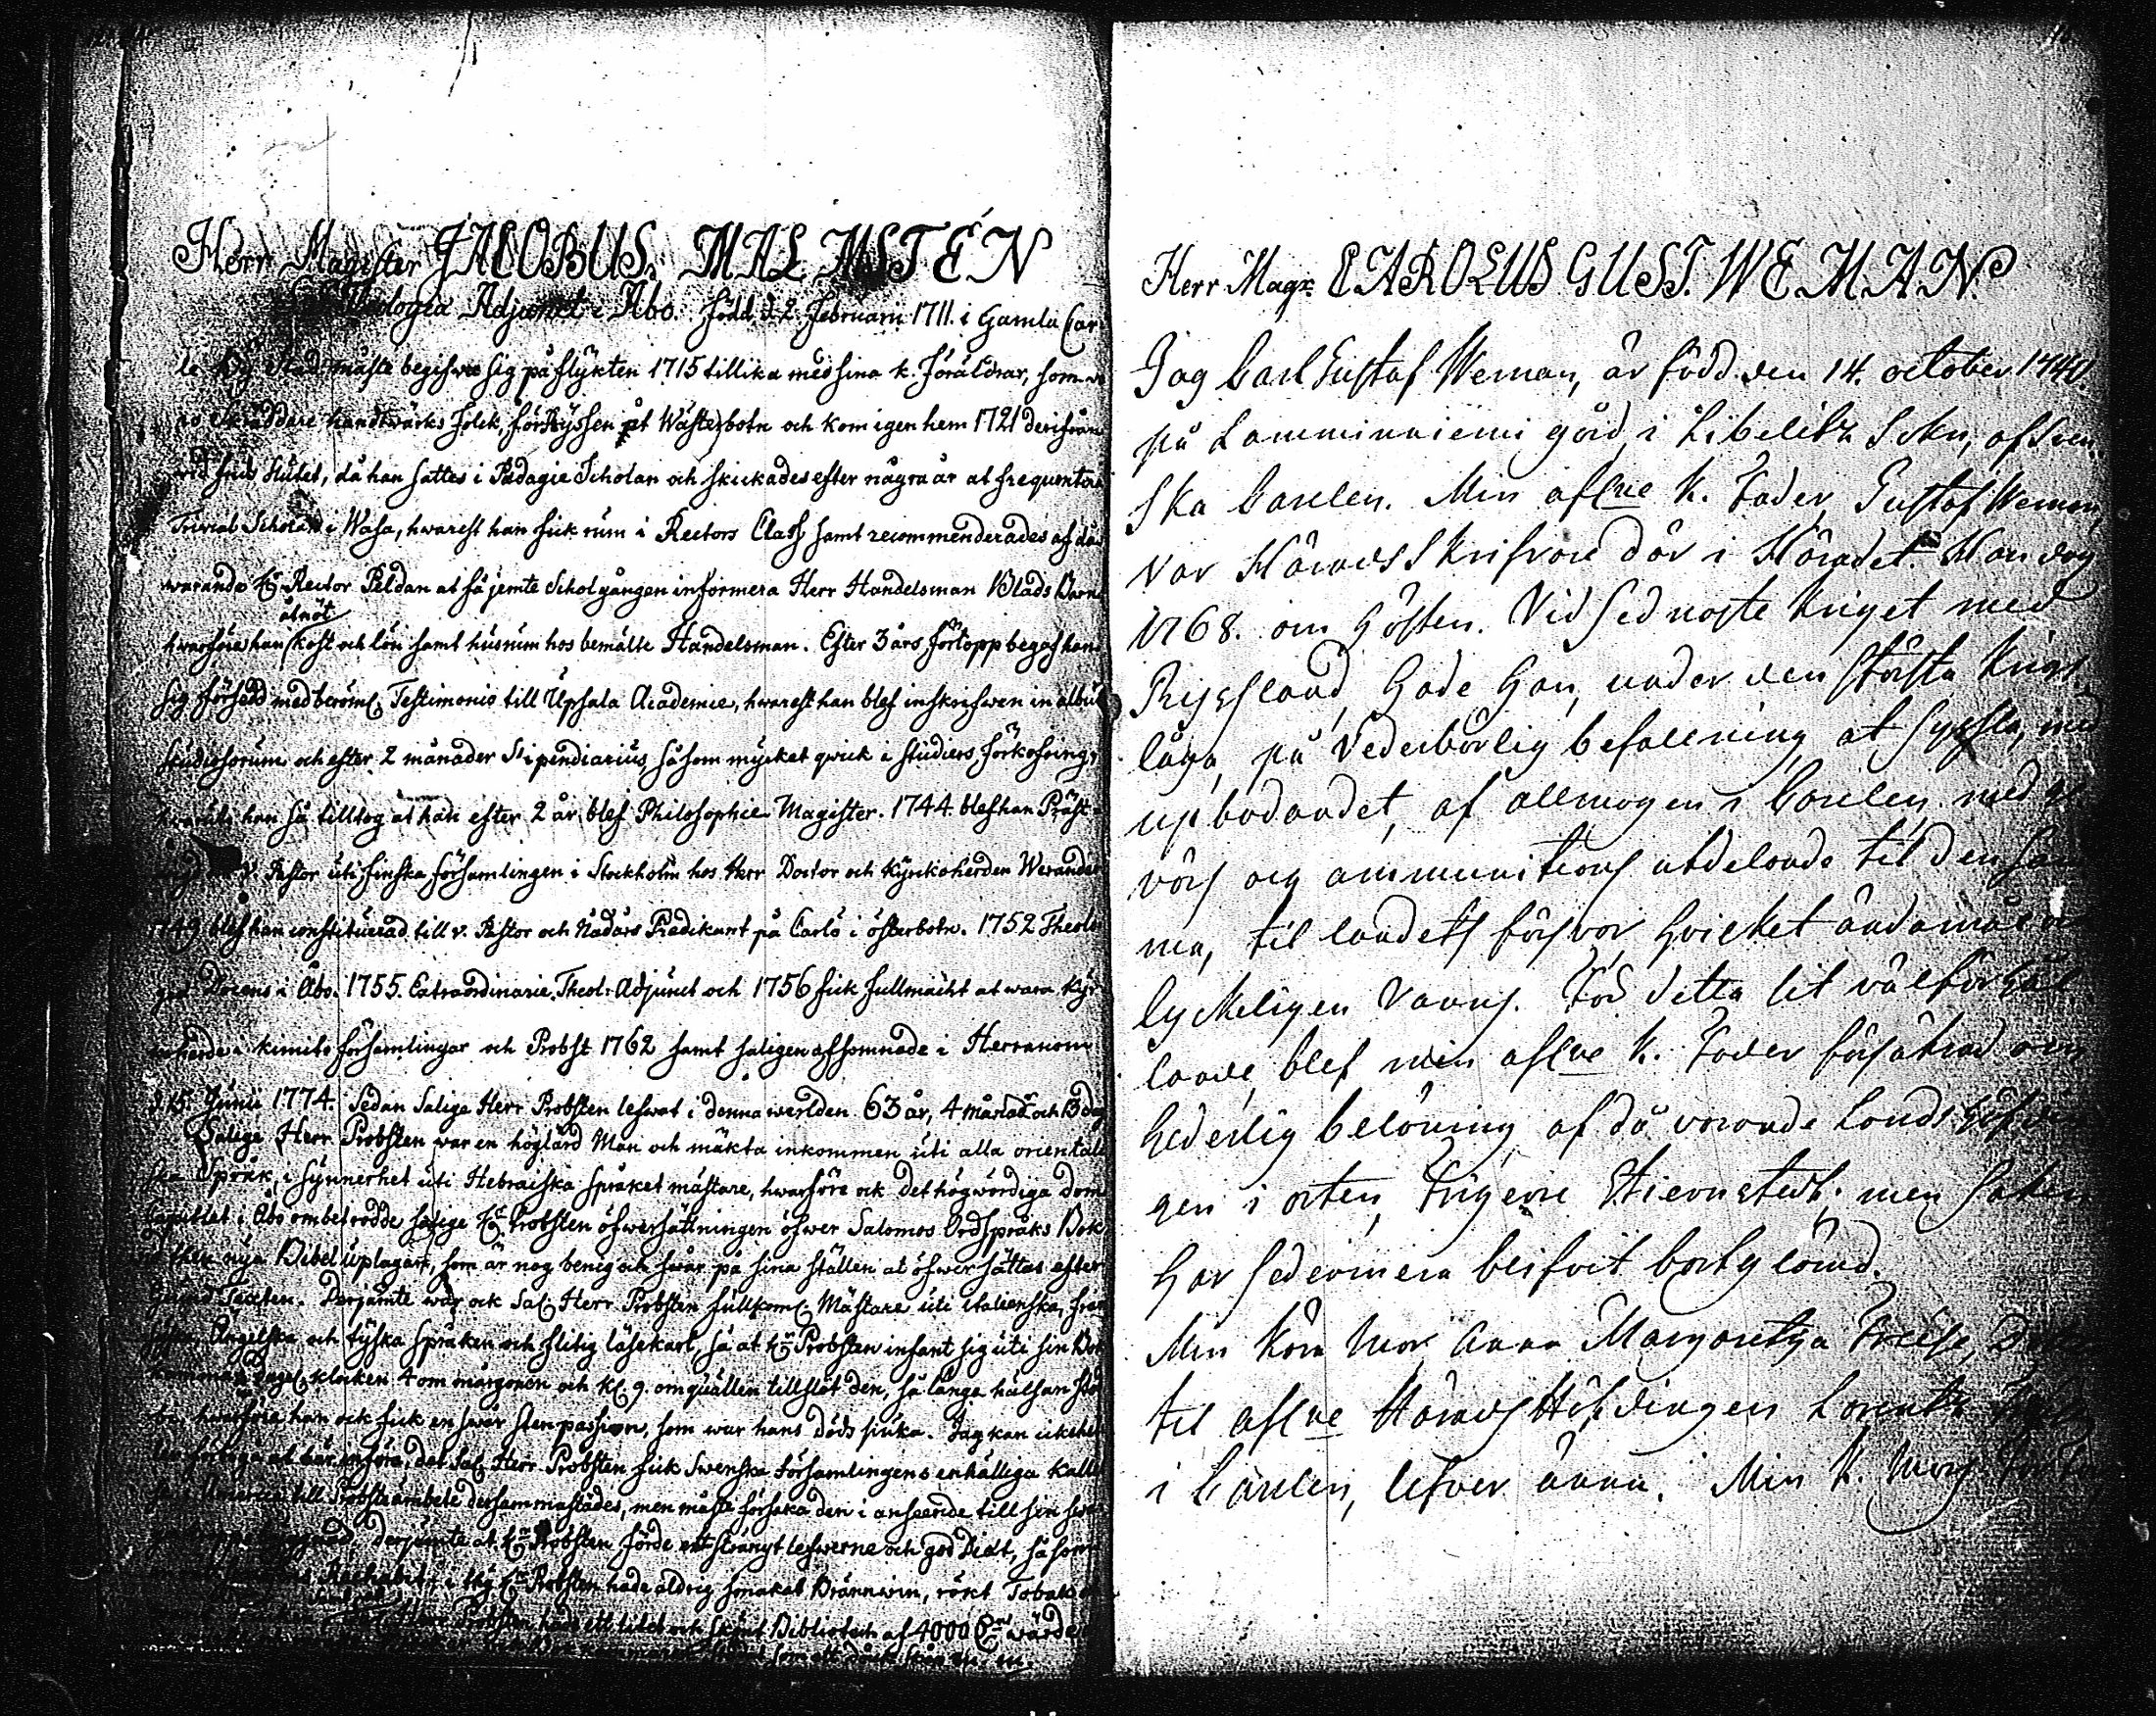 Herr Magister JACOBUS MALMSTÉN
Theologiæ Adjunct i Åbo. född d. 2 Februarii 1711. i Gamla Car
le by Stad måste begifwa sig på flykten 1715 tillika med sina k. föräldrar, som wo
ro Skräddare handtwärks folck, för Ryssen åt Wästerbotn och kom igen hem 1721 derifrån
wid frids slutet, då han sattes i Pædagie Scholan och skickades efter några år at frequentera
Trivial Scholan i Wasa, hwarest han fick rum i Rectors Class samt recommenderades af då
warande H:r Rector Peldan at få jemte Scholgången informera Herr Handelsman Blads Barn
åtnöt
hwarföre han kost och lön samt husrum hos bemälte Handelsman. Efter 3 års förlopp begaf han
sig försedd med beröml. Testimonio till Upsala Academie, hwarest han blef inskrifwen in album
Studiosorum och efter 2 månader Stipendiarius, såsom mycket qwick i studiers förkofring,
hwaruti han så tilltog at han efter 2 år blef Philosophie Magister. 1744 blef han Präst
v. Pastor uti finska församlingen i Stockholm hos Herr Doctor och Kyrkoherden Werander
1749 blef han constituerad till v. Pastor och Nådårs Predikant på Carlö i österbotn. 1752 Theolo
gie Docens i Åbo. 1755. Extraordinarie Theol. Adjunct och 1756 fick fullmackt at wara Kyr
koherde i Kimito församlingar och Probst 1762 samt saligen afsomnade i Herranom
d. 15. Junii 1774. Sedan Salige Herr Probsten lefwat i denna werlden 63 år, 4 månad och 13 dag
Salige Herr Probsten war en höglärd Man och mäkta inkommen uti alla oriental
ska Språk, i synnerhet uti Hebraiska språket mästare, hwarföre ock det högwördiga Dom
Capitlet i Åbo ombetrodde salige H:r Probsten öfwersättningen öfwer Salomos Ordspråks Bok
nya Bibel uplagan, som är nog benig och swår på sina ställen at öfwersättas efter
Grund Texten. Derjämte war ock Sal. Herr Probsten fullkoml. Mästare uti Italienska, fran
syska, Ängelska och tyska språken och flitig läsekarl, så at H:r Probsten infant sig uti sin Bok
kammare dagel. klocken 4 om morgonen och kl. 9. om quällen tillslöt den, så länge hälsan stod
bi, hwarföre han ock fick en swår stenpassion, som war hans döds siuka. Jag kan icke hel
ler förbiga at här införa, det Sal. Herr Probsten fick Swenska församlingens enhälliga kalle
America till Probsteämbete dersammastädes, men måste försaka den i anseende till sin
derjämte at H:r Probsten förde ett strängt lefwerne och god Diet, såsom
H:r Probsten hade aldrig smakat Brännwin, rökt Tobak
Herr Probsten hade ett litet och skönt Bibliotech af 4000 wärde

Herr Mag:r CAROLUS GUST. WEMAN.
Jag Carl Gustaf Weman, är född den 14. october 1740.
på Lamminniemi gård, i Libelitz Sokn, af Sven-
ska Carelen. Min afl:ne k. Fader, Gustaf Weman,
var Häradsskrifvare där i Häradet. Han dog
1768. om hösten. Vid sednaste kriget med
Ryssland, hade han, under den största krigs
låga, på Vederbörlig befallning at syssla, med
upbodandet, af allmogen i Carelen, med ge
värs och ammunitions utdelande til den sam
ma, til landets försvar hvilket ändamål ock
lyckeligen vanns. För detta sit välförhål
lande, blef min afl:ne k. Fader försäkrad om
hederlig belöning af då varande Landshöfdin
gen i orten, Friherre Stiernstedt; men saken
har sedermera blifvit bortglömd.
Min kära Mor Anna Margaretha Freise, Dot
til afl:ne Häradshöfdingen Lorentz
i Carelen, lefver ännu. Min k. Mors